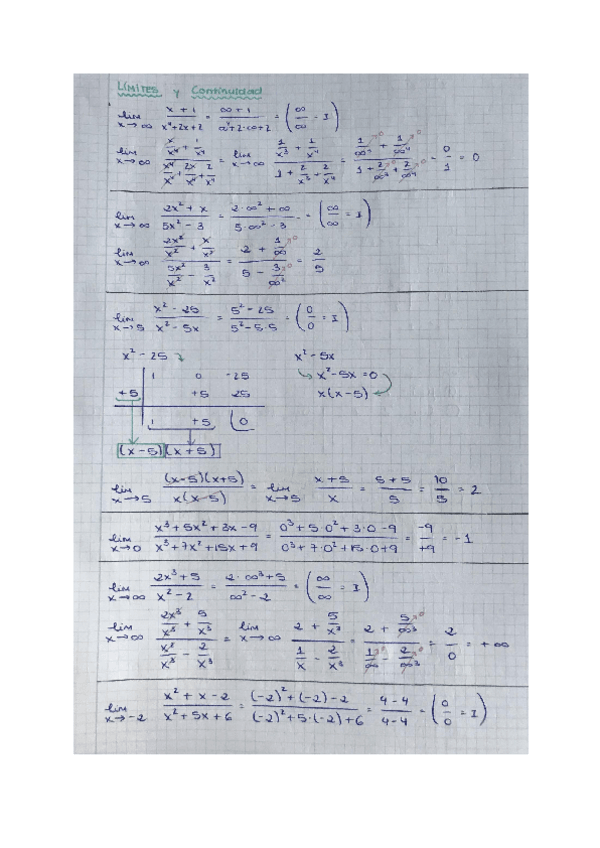 Límites y Continuidad
lim x→∞ (x + 1)/(x⁴+2x+2) = (∞ + 1)/(∞⁴+2·∞+2) = (∞/∞ = I)
lim x→∞ (x/x⁴ + 1/x⁴)/(x⁴/x⁴ + 2x/x⁴ + 2/x⁴) = lim x→∞ (1/x³ + 1/x⁴)/(1 + 2/x³ + 2/x⁴) = (1/∞³ + 1/∞⁴)/(1 + 2/∞³ + 2/∞⁴) = 0/1 = 0
lim x→∞ (2x² + x)/(5x² - 3) = (2·∞² + ∞)/(5·∞² - 3) = (∞/∞ = I)
lim x→∞ (2x²/x² + x/x²)/(5x²/x² - 3/x²) = (2 + 1/∞)/(5 - 3/∞²) = 2/5
lim x→5 (x² - 25)/(x² - 5x) = (5² - 25)/(5² - 5·5) = (0/0 = I)
x² - 25 x² - 5x
1 0 -25 x² - 5x = 0
+5 +5 25 x(x - 5)
1 +5 0
(x - 5)(x + 5)
lim x→5 (x-5)(x+5)/x(x-5) = lim x→5 (x + 5)/x = (5 + 5)/5 = 10/5 = 2
lim x→0 (x³ + 5x² + 3x - 9)/(x³ + 7x² + 15x + 9) = (0³ + 5·0² + 3·0 - 9)/(0³ + 7·0² + 15·0 + 9) = -9/+9 = -1
lim x→∞ (2x³ + 5)/(x² - 2) = (2·∞³ + 5)/(∞² - 2) = (∞/∞ = I)
lim x→∞ (2x³/x³ + 5/x³)/(x²/x³ - 2/x³) = lim x→∞ (2 + 5/x³)/(1/x - 2/x³) = (2 + 5/∞³)/(1/∞ - 2/∞³) = 2/0 = +∞
lim x→-2 (x² + x - 2)/(x² + 5x + 6) = ((-2)² + (-2) - 2)/((-2)² + 5·(-2) + 6) = (4 - 4)/(4 - 4) = (0/0 = I)